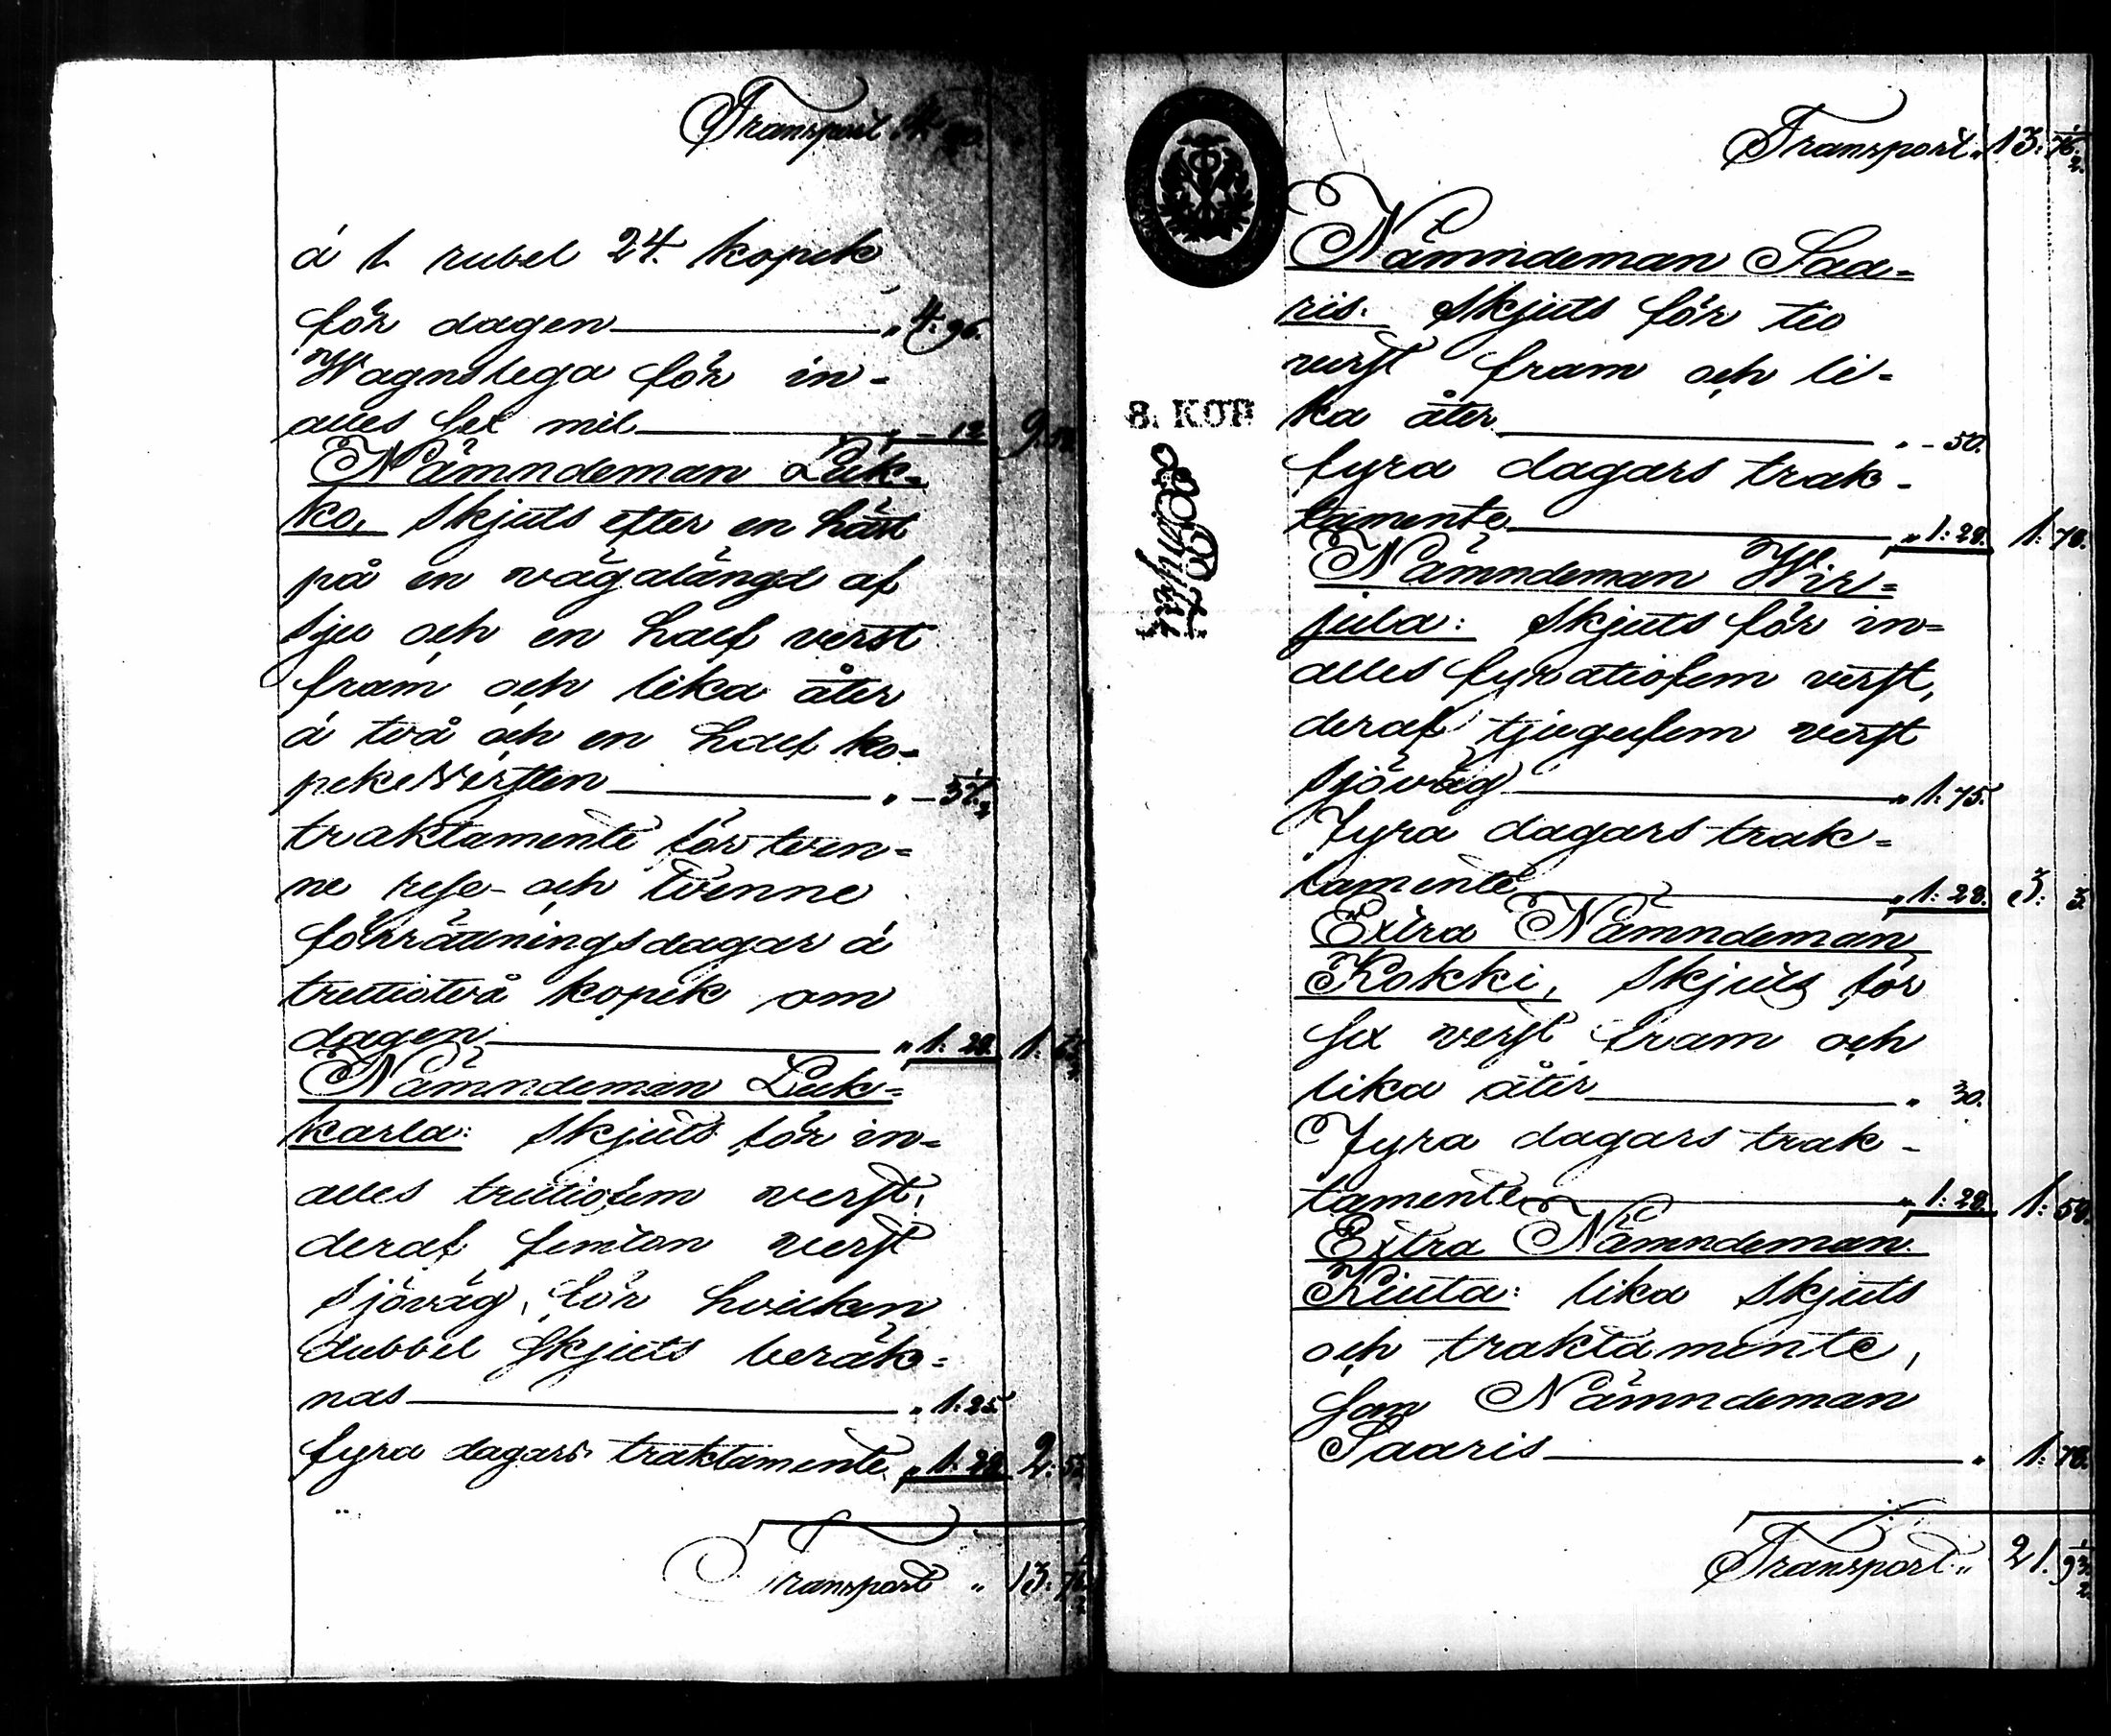 Transport
á 1. rubel 24. kopek
för dagen " 4: 96.
Wagnslega för in=
alles sex mil " – 12
Nämndeman Luk=
ko. Skjuts efter en häst
på en vägalängd af
sju och en half verst
fram och lika åter
á två och en half ko=
pek Versten " – 37 1/2
traktamente för tven=
ne rese- och tvenne
förrättningsdagar á
trettiotvå kopek om
dagen " 1: 28.
Nämndeman Luk=
karla: Skjuts för in=
alles trettiofem verst,
deraf femton verst
sjöväg, för hvilken
dubbel skjuts beräk=
nas " 1: 25.
fyra dagars traktamente " 1: 28. 2: 53
Transport " 13: 76 1/2
Transport " 13: 76 1/2.
8. KOP.
Nämndeman Saa=
ris. Skjuts för tio
verst fram och li=
ka åter " – 50.
fyra dagars trak=
tamente " 1: 28. 1: 78.
Nämndeman Wir=
jula: Skjuts för in=
alles fyratiofem verst,
deraf tjugufem verst
sjöväg " 1: 75.
Fyra dagars trak=
tamente " 1: 28. 3: 3.
Extra Nämndeman
Kokki, Skjuts för
sex verst fram och
lika åter " 30.
Fyra dagars trak=
tamente " 1: 28. 1: 58.
Extra Nämndeman
Kiuta: lika skjuts
och traktamente,
som Nämndeman
Saaris " 1: 78.
Transport " 21. 93 1/2